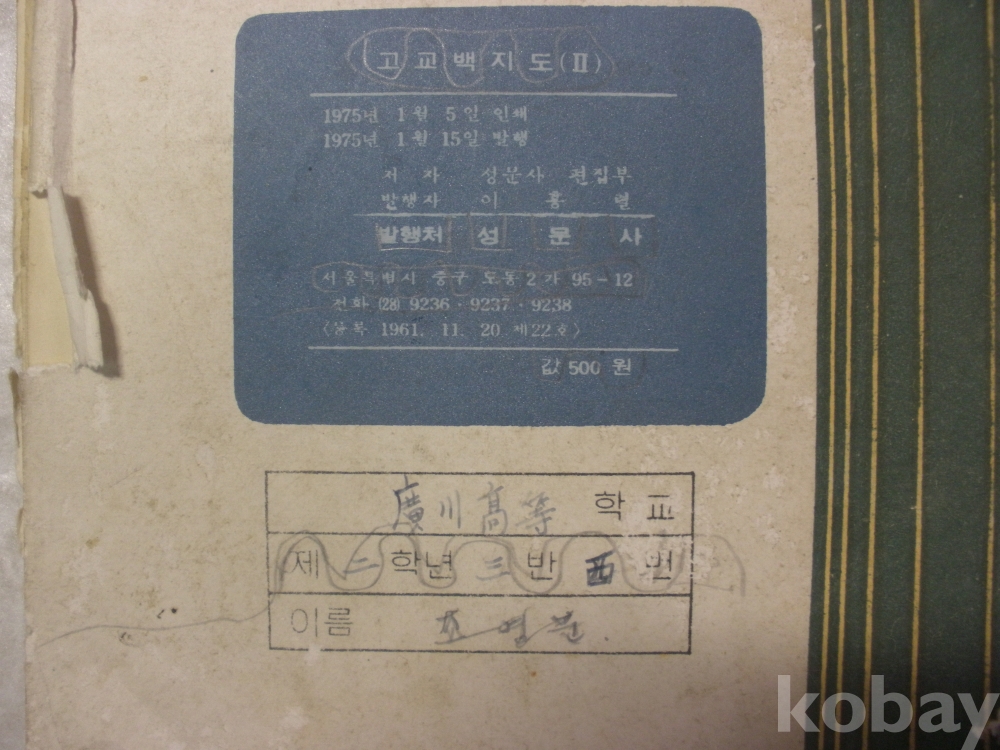 고교백지도(Ⅱ)
1975년 1월 5일 인쇄
1975년 1월 15일 발행
저 자 성문사 편집부
발행자 이 흥 렬
발행처 성 문 사
서울특별시 중구 도동 2 가 95-12
전화 (28) 9236·9237·9238
<등록 1961. 11. 20. 제22호>
값 500 원
廣川高等 학 교
제 二 학년 三 반 西 번
이름 조 영
kobay